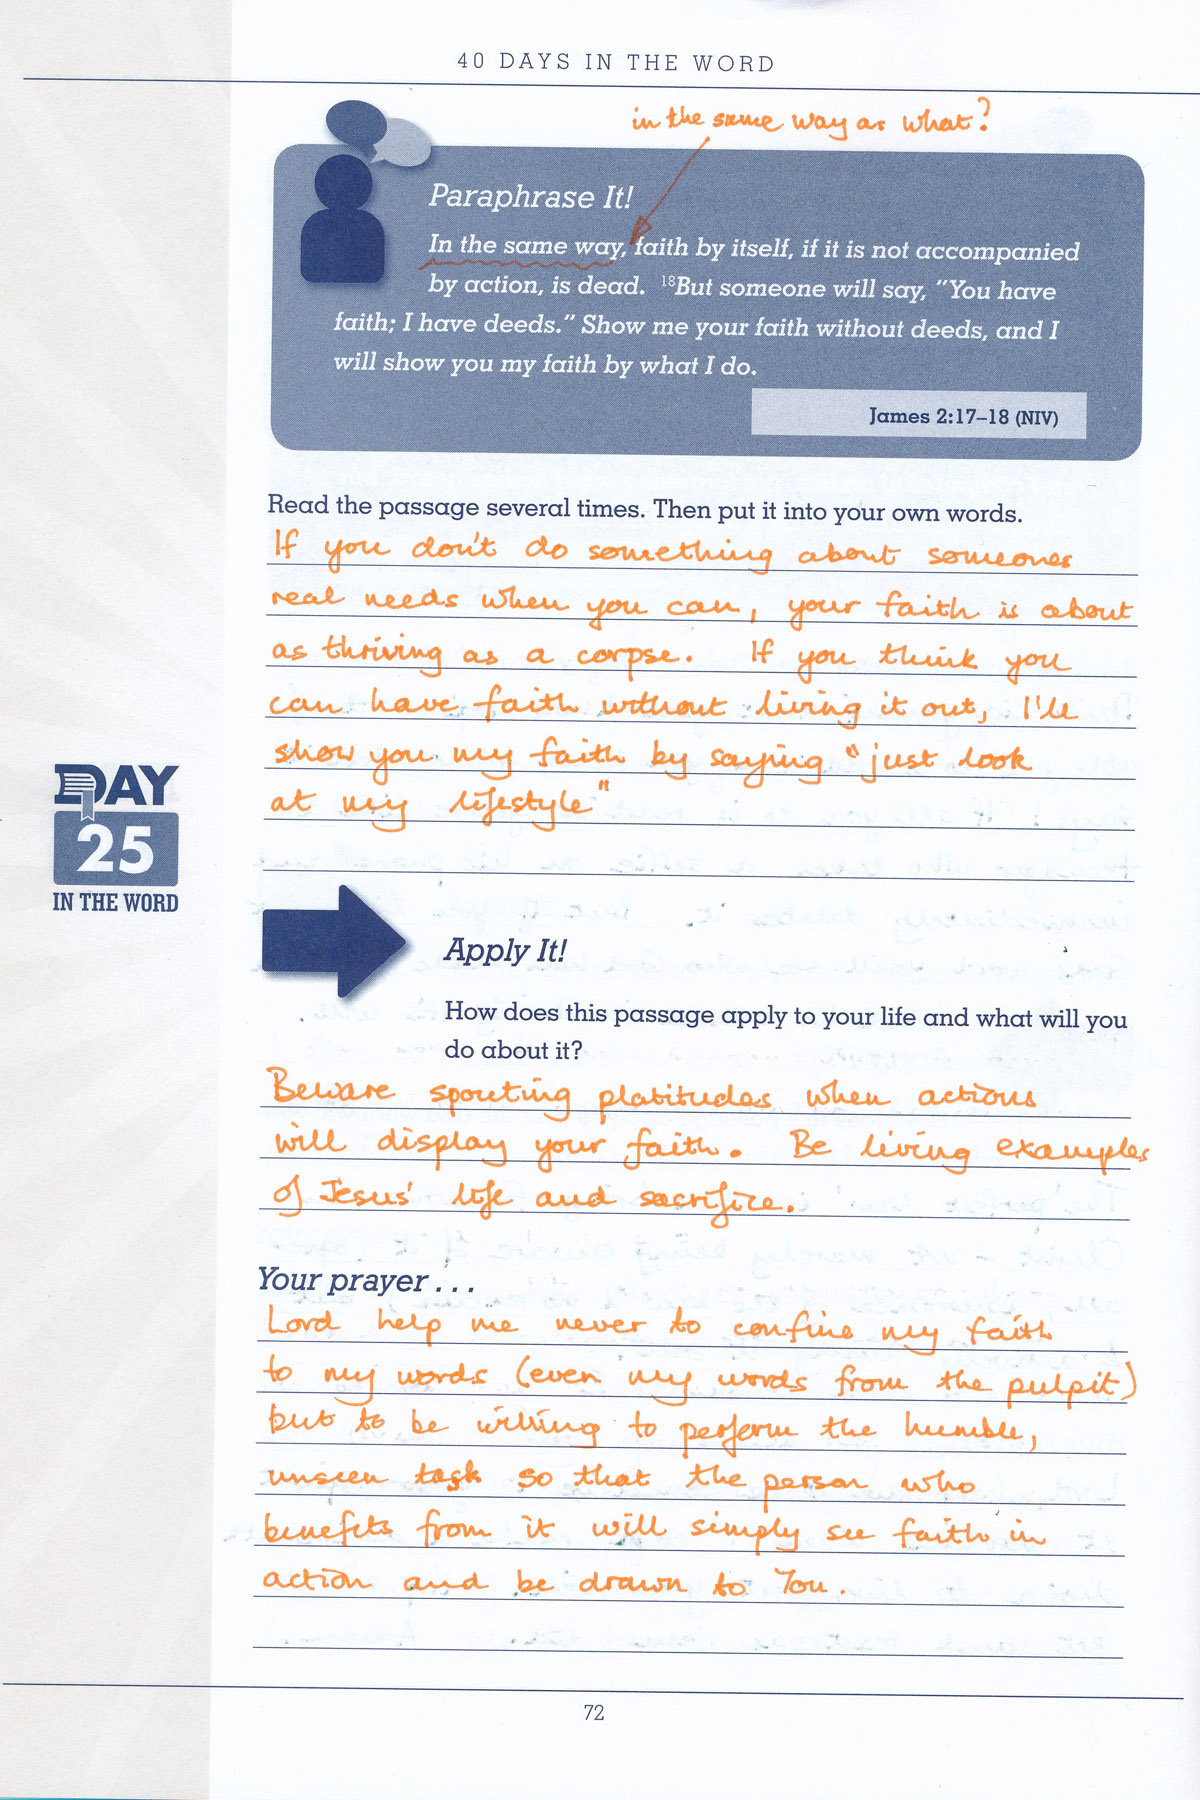 40 DAYS IN THE WORD
in the same way as what?
Paraphrase It!
In the same way, faith by itself, if it is not accompanied
by action, is dead. 18But someone will say, "You have
faith; I have deeds." Show me your faith without deeds, and I
will show you my faith by what I do.
James 2:17–18 (NIV)
Read the passage several times. Then put it into your own words.
If you don't do something about someones
real needs when you can, your faith is about
as thriving as a corpse. If you think you
can have faith without living it out, I'll
show you my faith by saying "just look
at my lifestyle"
DAY
25
IN THE WORD
Apply It!
How does this passage apply to your life and what will you
do about it?
Beware spouting platitudes when actions
will display your faith. Be living examples
of Jesus' life and sacrifice.
Your prayer . . .
Lord help me never to confine my faith
to my words (even my words from the pulpit)
but to be willing to perform the humble,
unseen task so that the person who
benefits from it will simply see faith in
action and be drawn to You.
72